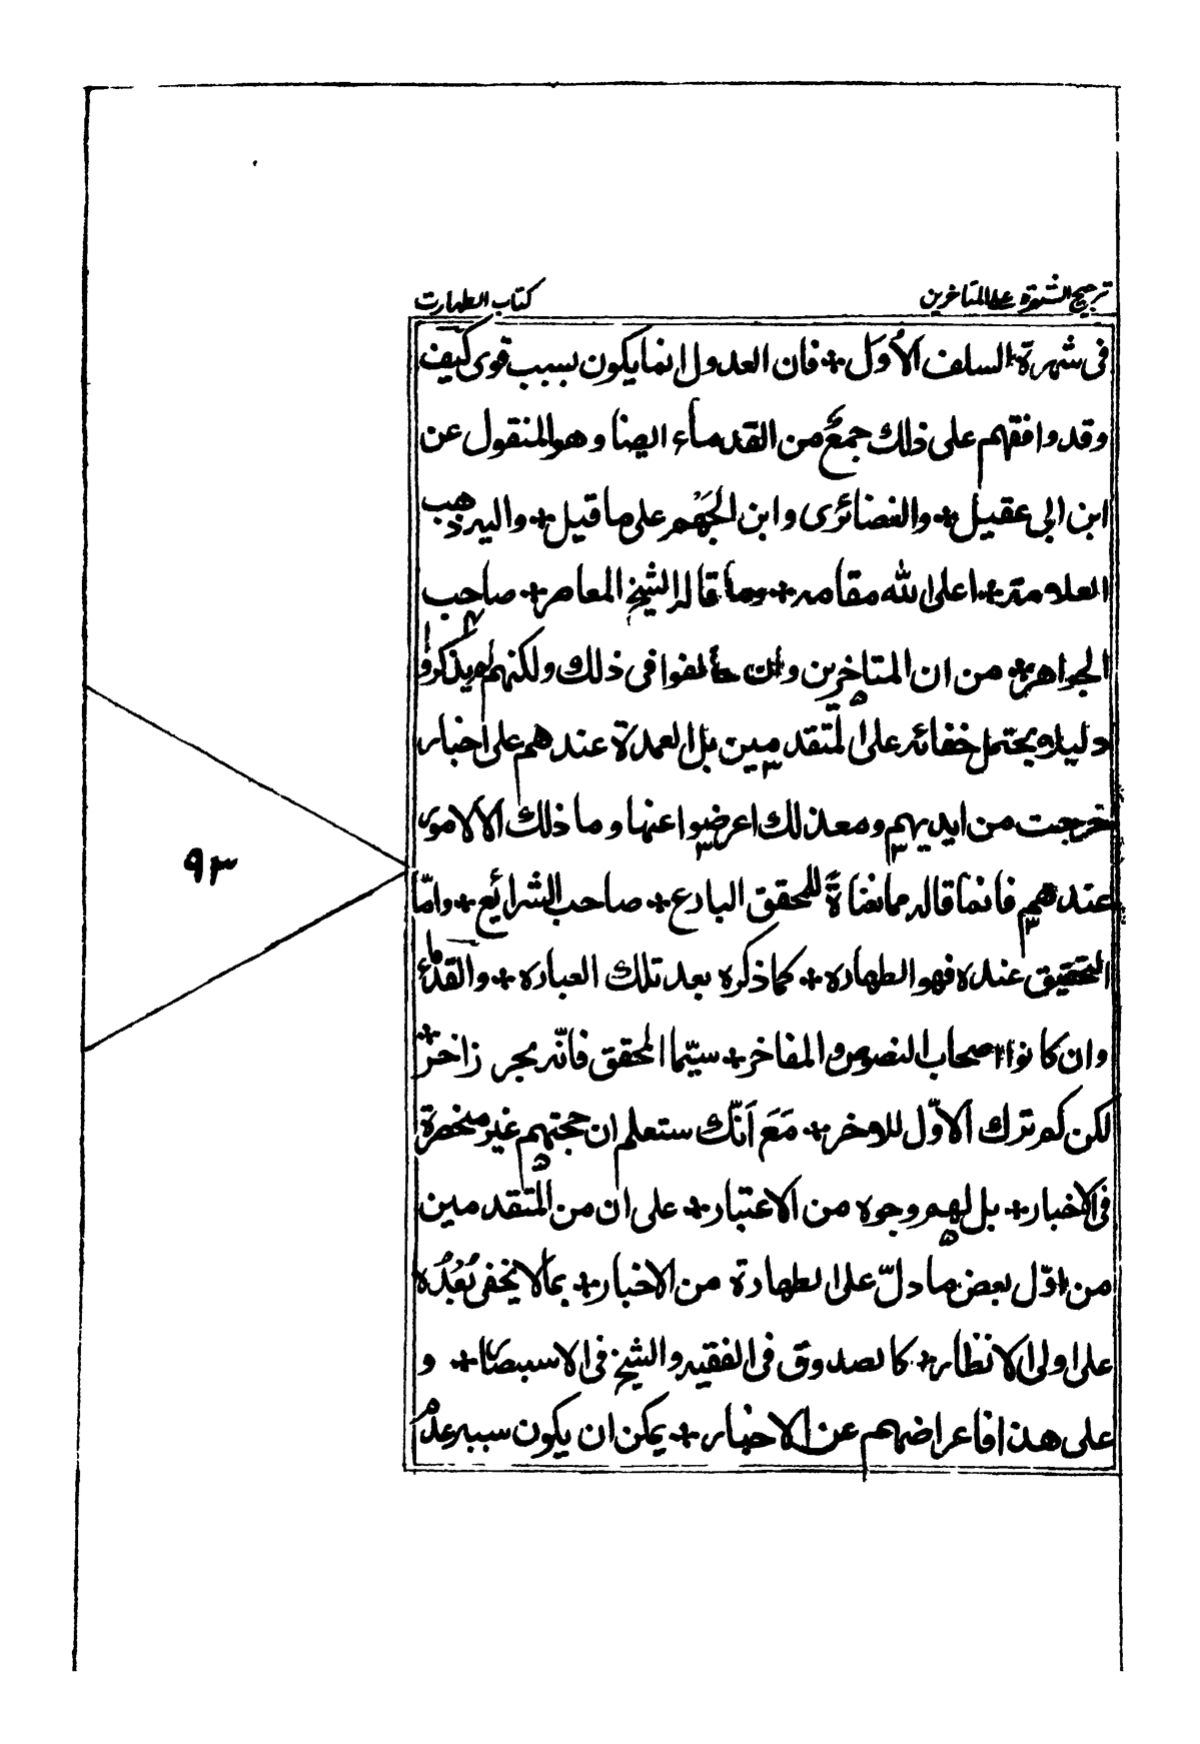 ترجيح الشهرة على المتاخرين
كتاب الطهارت
فى شهرة السلف الأُوَل + فان العدول انما يكون بسبب قوى كيف
وقد وافقهم على ذلك جمعٌ من القدماء ايضا وهو المنقول عن
ابن ابى عقيل + والغضائرى وابن الجَهْم على ما قيل + واليه ذهب
العلامة + اعلى الله مقامه + وما قاله الشيخ المعاصر + صاحب
الجواهر + من ان المتاخرين وان خالفوا فى ذلك ولكنهم لم يذكروا
دليلا يحتمل خفائه على المتقدمين بل العمدة عندهم على اخبار
خرجت من ايديهم ومعذلك اعرضوا عنها وما ذلك الا لامرٍ
عندهم فانما قاله مما نعناةً للمحقق البارع + صاحب الشرائع + وامّا
التحقيق عنده فهو الطهاره + كما ذكره بعد تلك العباره + والقدماء
وان كانوا اصحاب النصوص والمفاخر + سيّما المحقق فانّه بحر زاخرٌ +
لكن كم ترك الاوّل للاخر + مَعَ اَنّك ستعلم ان حجتهم غير منحصرة
فى الاخبار + بل لهم وجوه من الاعتبار + على ان من المتقدمين
من اوّل بعض ما دلّ على الطهارة من الاخبار + بما لا يخفى بُعْدُه
على اولى الانظار + كالصدوق فى الفقيه والشيخ فى الاستبصار + و
على هذا فاعراضهم عن الاخبار + يمكن ان يكون سببه عدم
٩٣